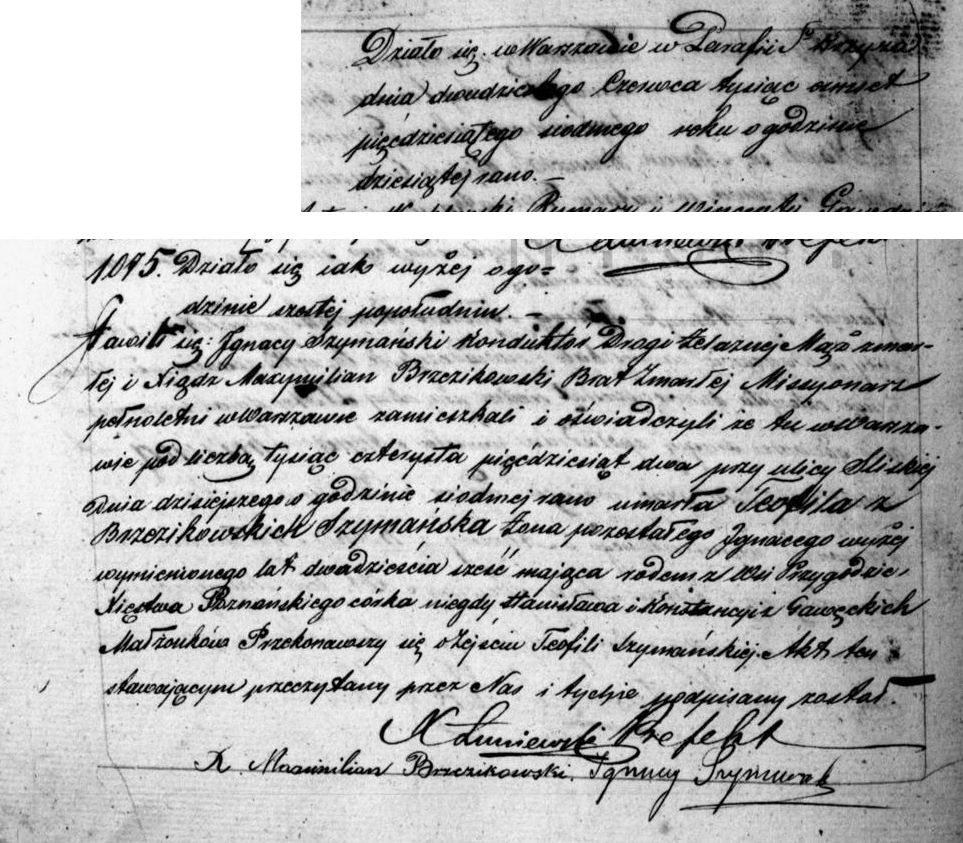 Działo się w Warszawie w Parafii Ś Krzyża
dnia dwudziestego Czerwca tysiąc ośmset
pięćdziesiątego siodmego roku o godzinie
dziesiątej rano. –
Rymarz i Wincenty
1095. Działo się iako wyżej o go=
dzinie szostej popołudniu. –
Stawili się: Jgnacy Szymański Konduktór Drogi Żelaznej Mąż zmar-
łej i Xiądz Maxymilian Brzezikowski Brat Zmarłej Missyonarz
pełnoletni w Warszawie zamieszkali i oświadczyli że tu w Warsza-
wie pod liczbą tysiąc czterysta pięćdziesiąt dwa przy ulicy Sliskiej
Dnia dzisiejszego o godzinie siodmej rano umarła Teofila z
Brzezikowskich Szymańska Żona pozostałego Jgnacego wyżej
wymienionego lat dwadzieścia sześć mająca rodem z Wsi Przygodzic,
Xięstwa Poznańskiego córka niegdy Stanisława i Konstancyi z Gawęckich
Małżonków Przekonawszy się o Zejściu Teofili Szymańskiej. Akt ten
stawającym przeczytany przez Nas i tychże podpisany został.
X Łuniewski Prefekt
X. Maximilian Brzezikowski. Ignacy Szymański